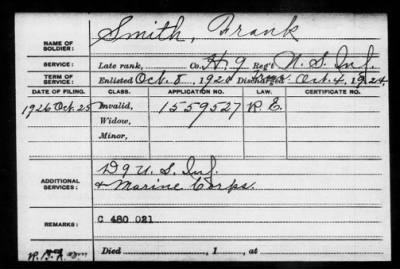 Smith, Frank
NAME OF
SOLDIER:
SERVICE: Late rank, Co. H 9 Reg't U. S. Inf.
TERM OF
SERVICE: Enlisted Oct. 8, 1920 Discharged Oct. 4, 1924
DATE OF FILING. CLASS. APPLICATION NO. LAW. CERTIFICATE NO.
1926 Oct. 25 Invalid, 1559527 R. E.
Widow,
Minor,
D 9 U. S. Inf.
ADDITIONAL
SERVICES: & Marine Corps.
REMARKS: C 480 021
Died , 1 , at